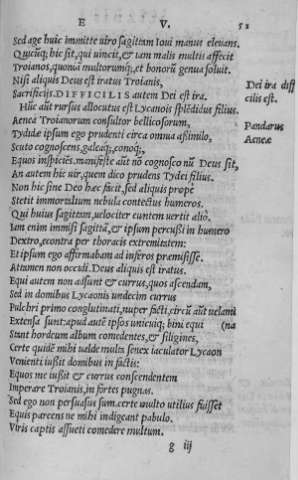 E V. 52
Sed age huic immitte uiro sagittam Ioui manus eleuans.
Quicūq; hic sit, qui uincit, & iam malis multis affecit
Troianos, quoniā multorumq;, et bonorū genua soluit.
Nisi aliquis Deus est iratus Troianis,
Sacrificijs. DIFFICILIS autem Dei est ira.
Dei ira diffi
cilis est.
Hūc aūt rursus allocutus est Lycaonis splēdidus filius.
Aenea Troianorum consultor bellicosorum,
Pandarus
Aeneæ
Tydidæ ipsum ego prudenti circa omnia assimilo.
Scuto cognoscens, galeaq;, conoq;,
Equos inspiciēs. manifeste aūt nō cognosco nū Deus sit,
An autem hic uir, quem dico prudens Tydei filius.
Non hic sine Deo hæc facit, sed aliquis propè
Stetit immortalium nebula contectus humeros.
Qui huius sagittam, uelociter euntem uertit aliò.
Iam enim immisi sagittā, & ipsum percußi in humero
Dextro, econtra per thoracis extremitatem:
Et ipsum ego affirmabam ad inferos præmisisse.
Attamen non occidi. Deus aliquis est iratus.
Equi autem non adsunt & currus, quos ascendam,
Sed in domibus Lycaonis undecim currus
Pulchri primo conglutinati, nuper facti, circū aūt uelami
Extensa sunt: apud autē ipsos unicuiq; bini equi (na
Stant hordeum album comedentes, & siligines,
Certe quidē mihi ualde multa senex iaculator Lycaon
Venienti iußit domibus in factis:
Equos me iußit & currus conscendentem
Imperare Troianis, in fortes pugnas.
Sed ego non persuasus sum. certe multo utilius fuisset
Equis parcens ne mihi indigeant pabulo.
Viris captis assueti comedere multum.
g iij